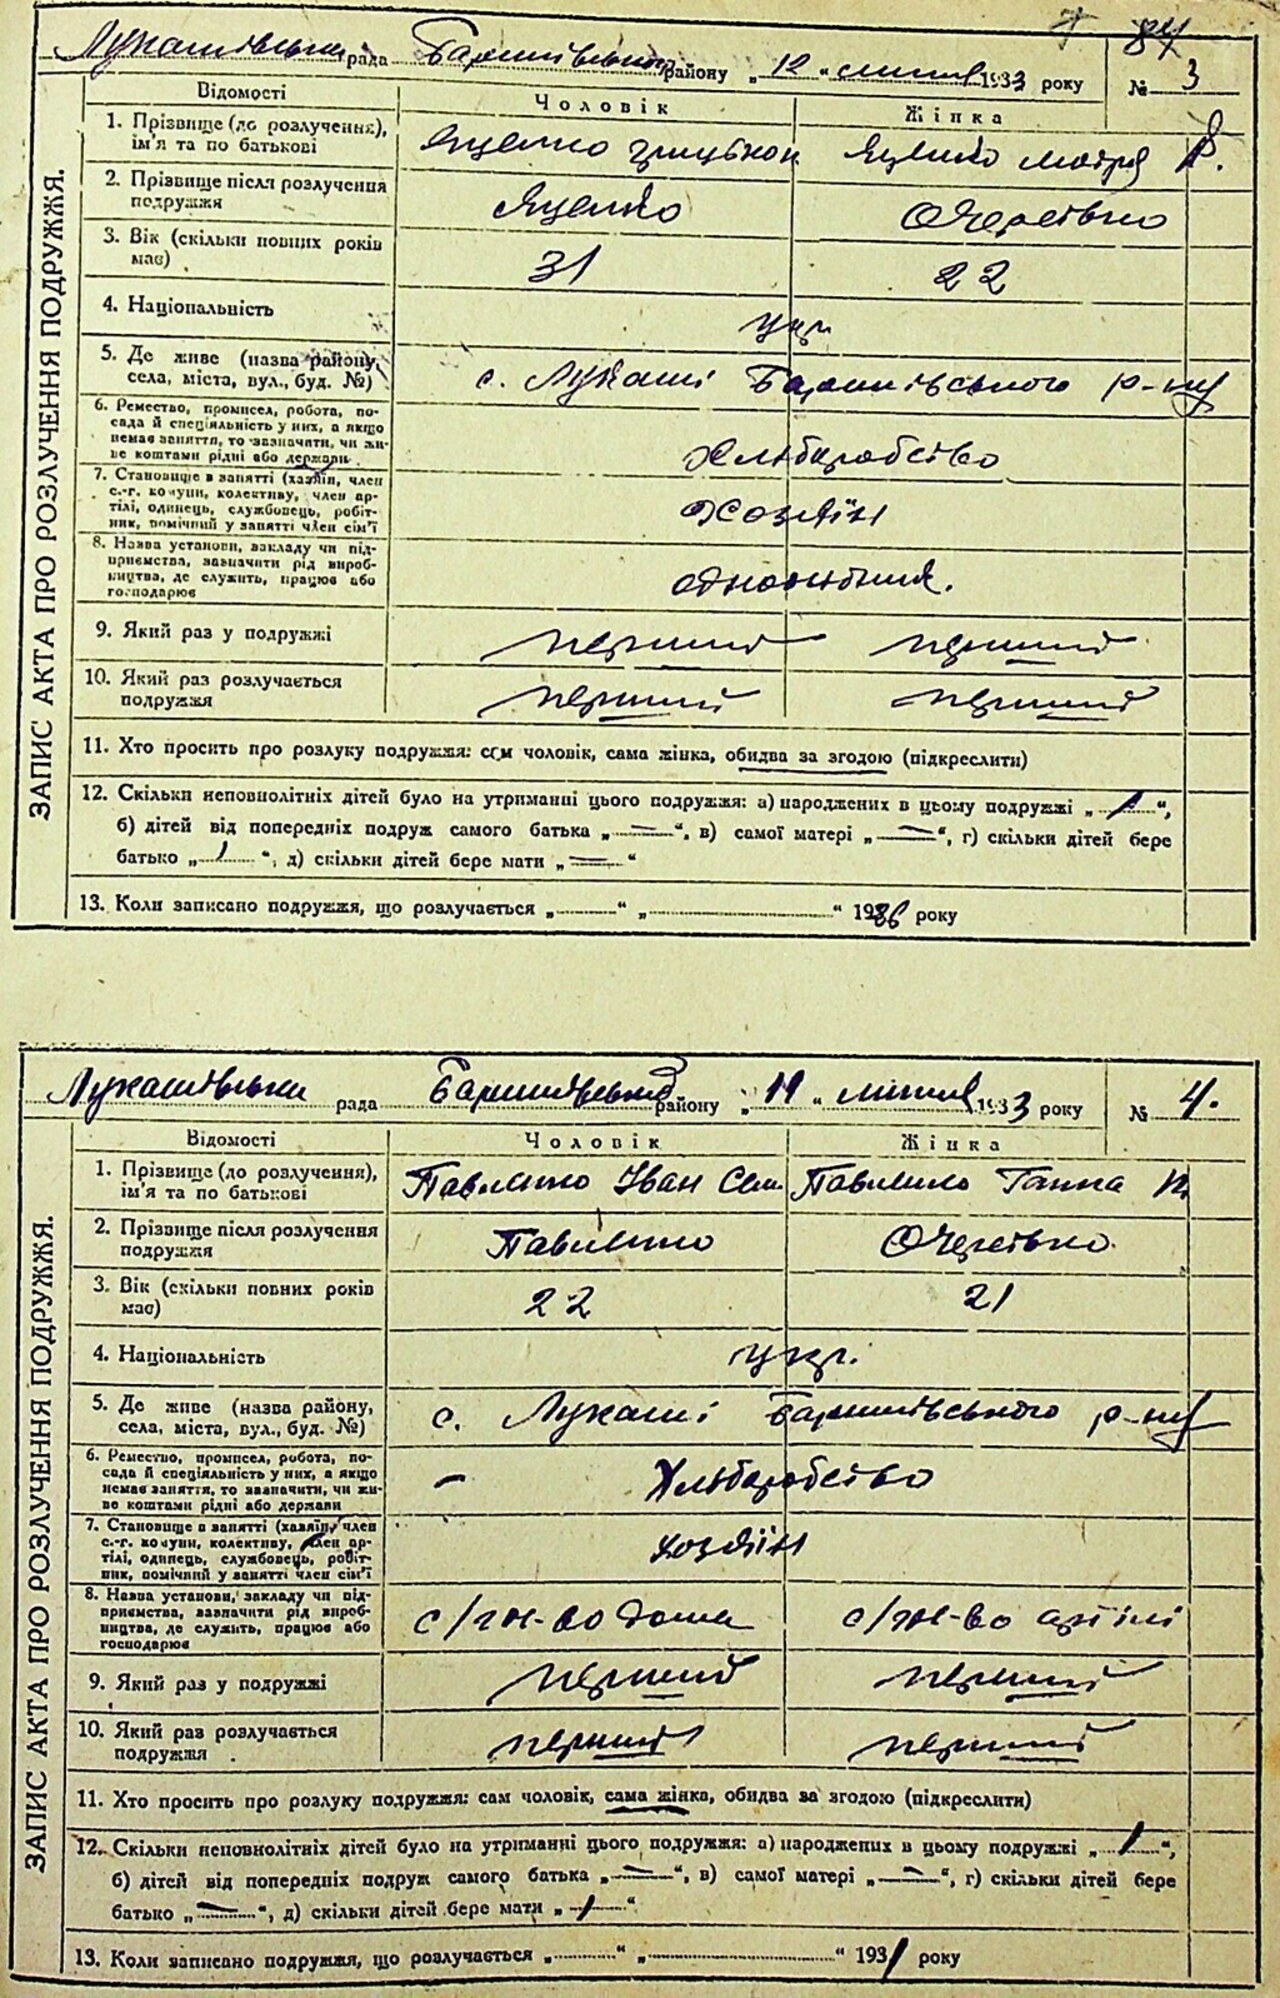 84
Лукашівська рада Баришівського району „12“ липня 1933 року № 3
ЗАПИС АКТА ПРО РОЗЛУЧЕННЯ ПОДРУЖЖЯ.
Відомості Чоловік Жінка
1. Прізвище (до розлучення), ім'я та по батькові Яценко Яценко Мотря
2. Прізвище після розлучення подружжя Яценко Очеретько
3. Вік (скільки повних років має) 31 22
4. Національність укр.
5. Де живе (назва району, села, міста, вул., буд. №) с. Лукаші Баришівського р-ну
6. Ремество, промисел, робота, по-
сада й спеціяльність у них, а якщо
немає заняття, то зазначити, чи жи-
ве коштами рідні або держави Хліборобство
7. Становище в занятті (хазяїн, член
с.-г. комуни, колективу, член ар-
тілі, одинець, службовець, робіт-
ник, помічний у занятті член сім'ї Хозяїн
8. Назва установи, закладу чи під-
приємства, зазначити рід вироб-
ництва, де служить, працює або
господарює
9. Який раз у подружжі перший перший
10. Який раз розлучається
подружжя перший перший
11. Хто просить про розлуку подружжя: сам чоловік, сама жінка, обидва за згодою (підкреслити)
12. Скільки неповнолітніх дітей було на утриманні цього подружжя: а) народжених в цьому подружжі „1“,
б) дітей від попередніх подруж самого батька „—“, в) самої матері „—“, г) скільки дітей бере
батько „1“, д) скільки дітей бере мати „—“
13. Коли записано подружжя, що розлучається „“ „“ 19 року
Лукашівська рада Баришівського району „11“ липня 1933 року № 4.
ЗАПИС АКТА ПРО РОЗЛУЧЕННЯ ПОДРУЖЖЯ.
Відомості Чоловік Жінка
1. Прізвище (до розлучення),
ім'я та по батькові Павленко Іван Сем. Павленко Ганна
2. Прізвище після розлучення
подружжя Павленко Очеретько
3. Вік (скільки повних років
має) 22 21
4. Національність укр.
5. Де живе (назва району,
села, міста, вул., буд. №) с. Лукаші Баришівського р-ну
6. Ремество, промисел, робота, по-
сада й спеціяльність у них, а якщо
немає заняття, то зазначити, чи жи-
ве коштами рідні або держави — Хліборобство
7. Становище в занятті (хазяїн, член
с.-г. комуни, колективу, член ар-
тілі, одинець, службовець, робіт-
ник, помічний у занятті член сім'ї хозяїн
8. Назва установи, закладу чи під-
приємства, зазначити рід вироб-
ництва, де служить, працює або
господарює с/госп-во дома с/госп-во артілі
9. Який раз у подружжі перший перший
10. Який раз розлучається
подружжя перший перший
11. Хто просить про розлуку подружжя: сам чоловік, сама жінка, обидва за згодою (підкреслити)
12. Скільки неповнолітніх дітей було на утриманні цього подружжя: а) народжених в цьому подружжі „1“,
б) дітей від попередніх подруж самого батька „—“, в) самої матері „—“, г) скільки дітей бере
батько „—“, д) скільки дітей бере мати „1“
13. Коли записано подружжя, що розлучається „“ „“ 1931 року